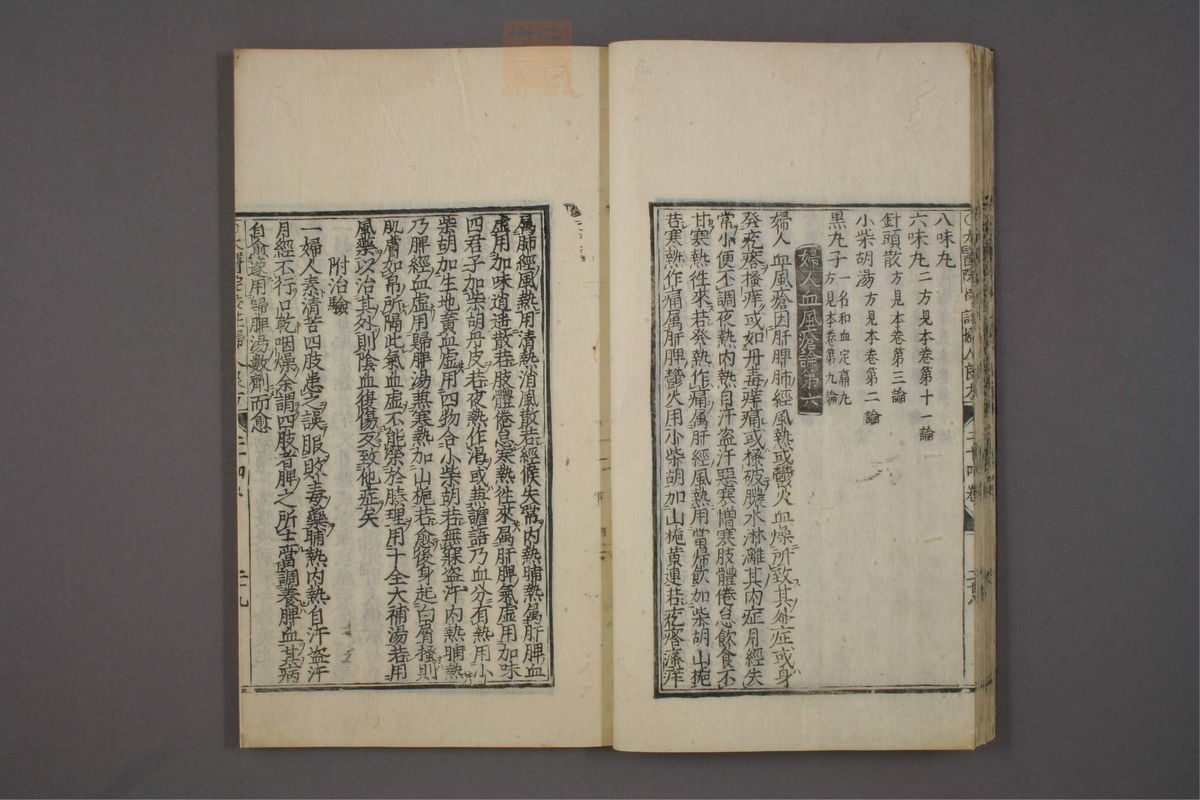 八味丸
六味丸 二方見本卷第十一論
針頭散 方見本卷第三論
小柴胡湯 方見本卷第二論
黒丸子 一名和血定痛丸 方見本卷第九論
婦人血風瘡論第六
婦人血風瘡因肝脾肺經風熱或鬱火血燥所致其外症或身
發疙瘩搔痒或如丹毒痒痛或搔破膿水淋漓其内症月經失
常小便不調夜熱内熱自汗盗汗惡寒憎寒肢體倦怠飲食不
甘寒熱徃來若發熱作痛属肝經風熱用當㱕飲加柴胡山梔
若寒熱作痛属肝脾鬱火用小柴胡加山梔黄連若疙瘩瘙痒
属肺經風熱用清熱消風散若經候失常内熱晡熱属肝脾血
虚用加味逍遥散若肢體倦怠寒熱徃來属肝脾氣虚用加味
四君子加柴胡丹皮若夜熱作渴或兼譫語乃血分有熱用小
柴胡加生地黄血虚用四物合小柴胡若無寐盗汗内熱晡熱
乃脾經血虚用歸脾湯兼寒熱加山梔若愈後身起白屑搔則
肌膚如帛所隔此氣血虚不能榮於腠理用十全大補湯若用
風藥以治其外則陰血復傷反致他症矣
附治驗
一婦人素清苦四肢患之誤服敗毒藥晡熱内熱自汗盗汗
月經不行口乾咽燥余謂四肢者脾之所主當調養脾血其病
自愈遂用歸脾湯數劑而愈